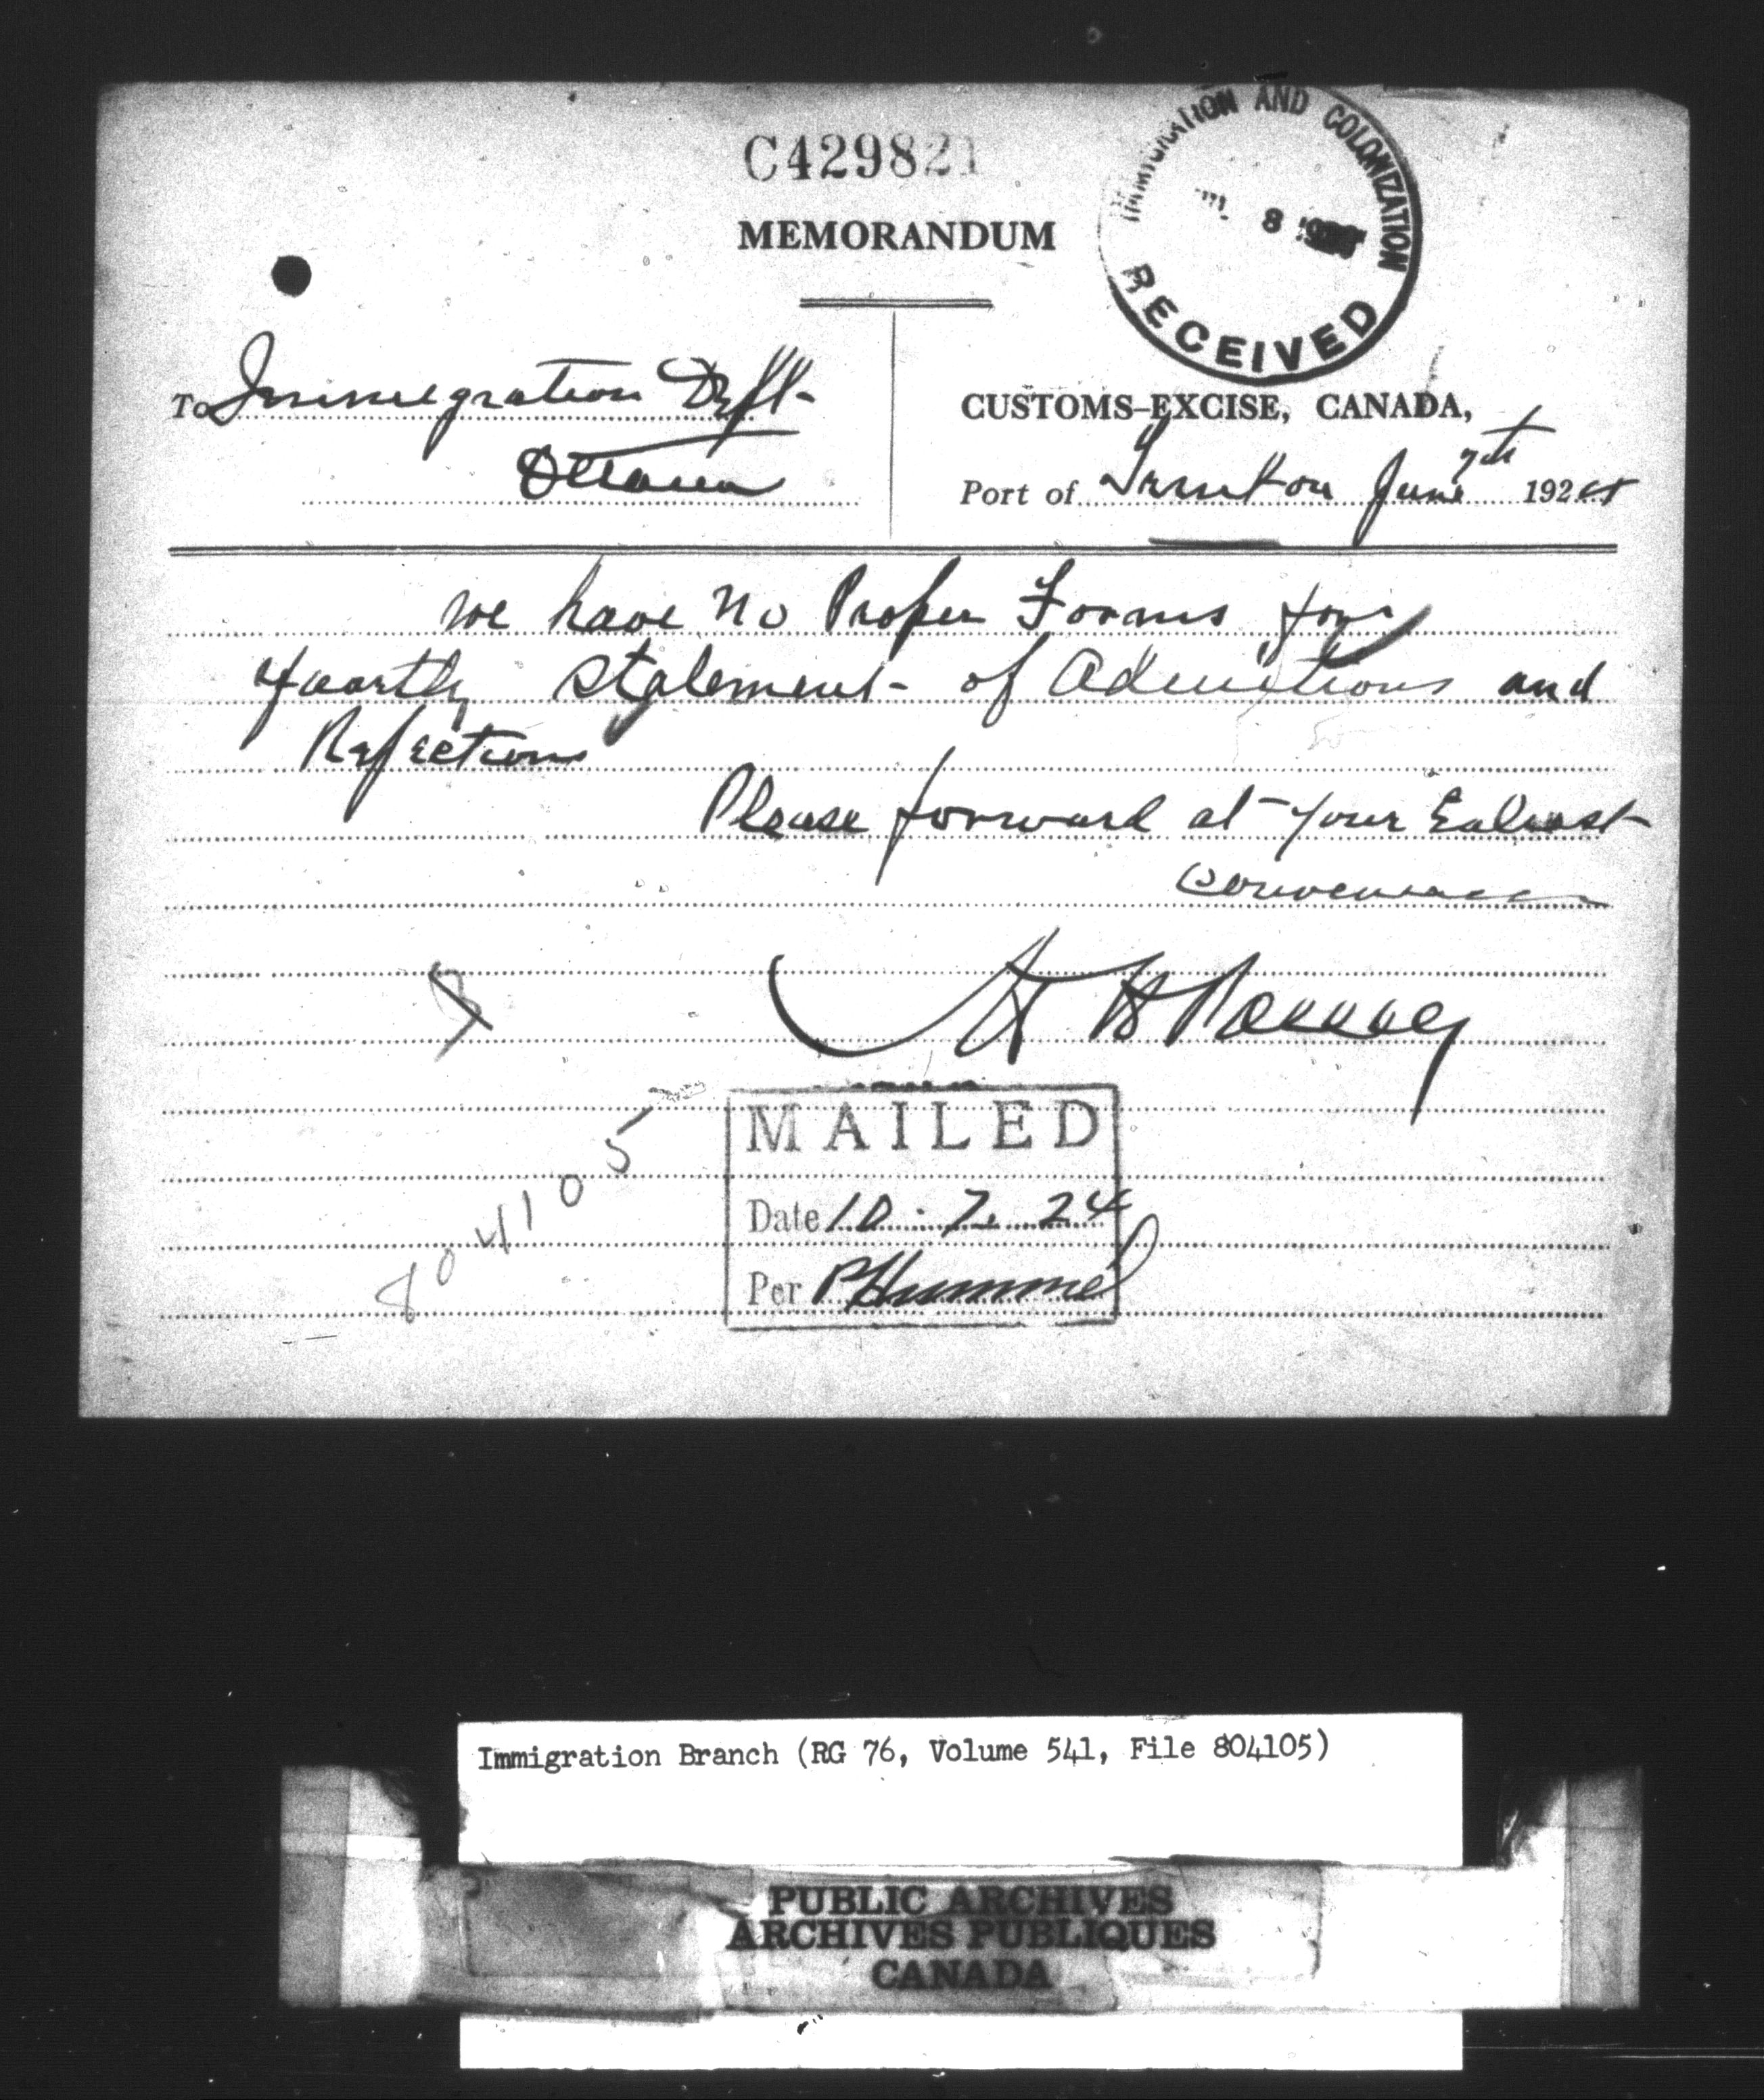 C429821
MEMORANDUM
IMMIGRATION AND COLONIZATION
8
RECEIVED
To Immigration Dept.
Ottawa
CUSTOMS-EXCISE, CANADA,
Port of Trenton June 7th 1924
we have No Proper Forms for
Quartly Statement of Admitions and
Rejections
Please forward at your Ealiest
convenience
MAILED
Date 10. 7. 24
Per PHummel
804105
Immigration Branch (RG 76, Volume 541, File 804105)
PUBLIC ARCHIVES
ARCHIVES PUBLIQUES
CANADA